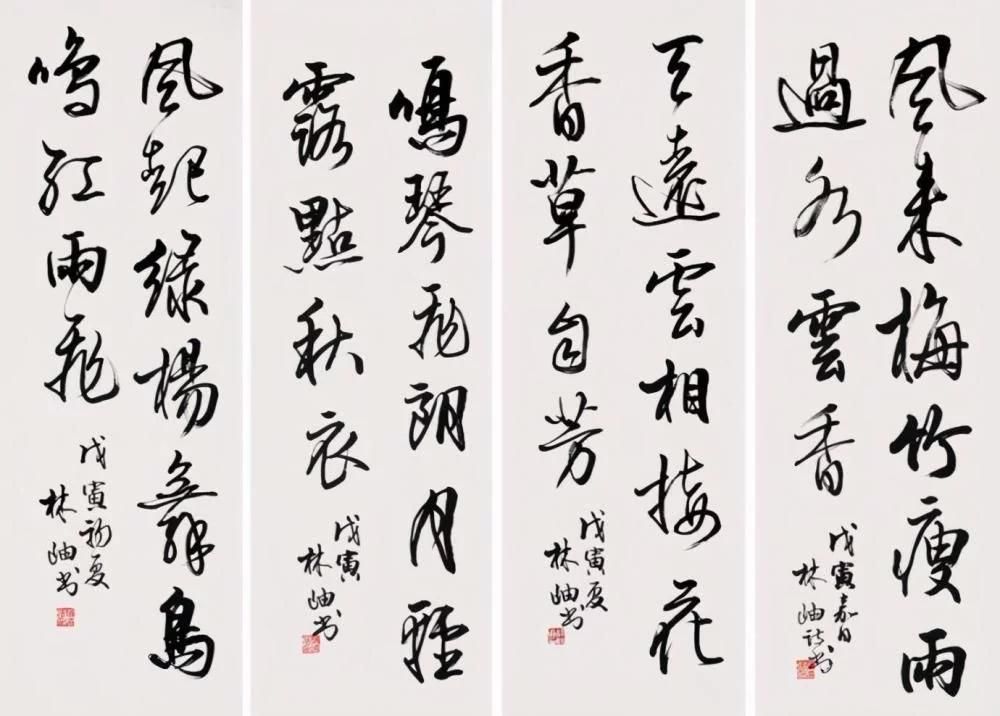 風来梅竹瘦雨
過水雲香
戊寅嘉日
林岫
天遠雲相接花
香草自芳
戊寅夏
林岫书
鳴琴飛朗月輕
露點秋衣
戊寅
林岫书
風起綠楊舞鳥
鳴紅雨飛
戊寅初夏
林岫书